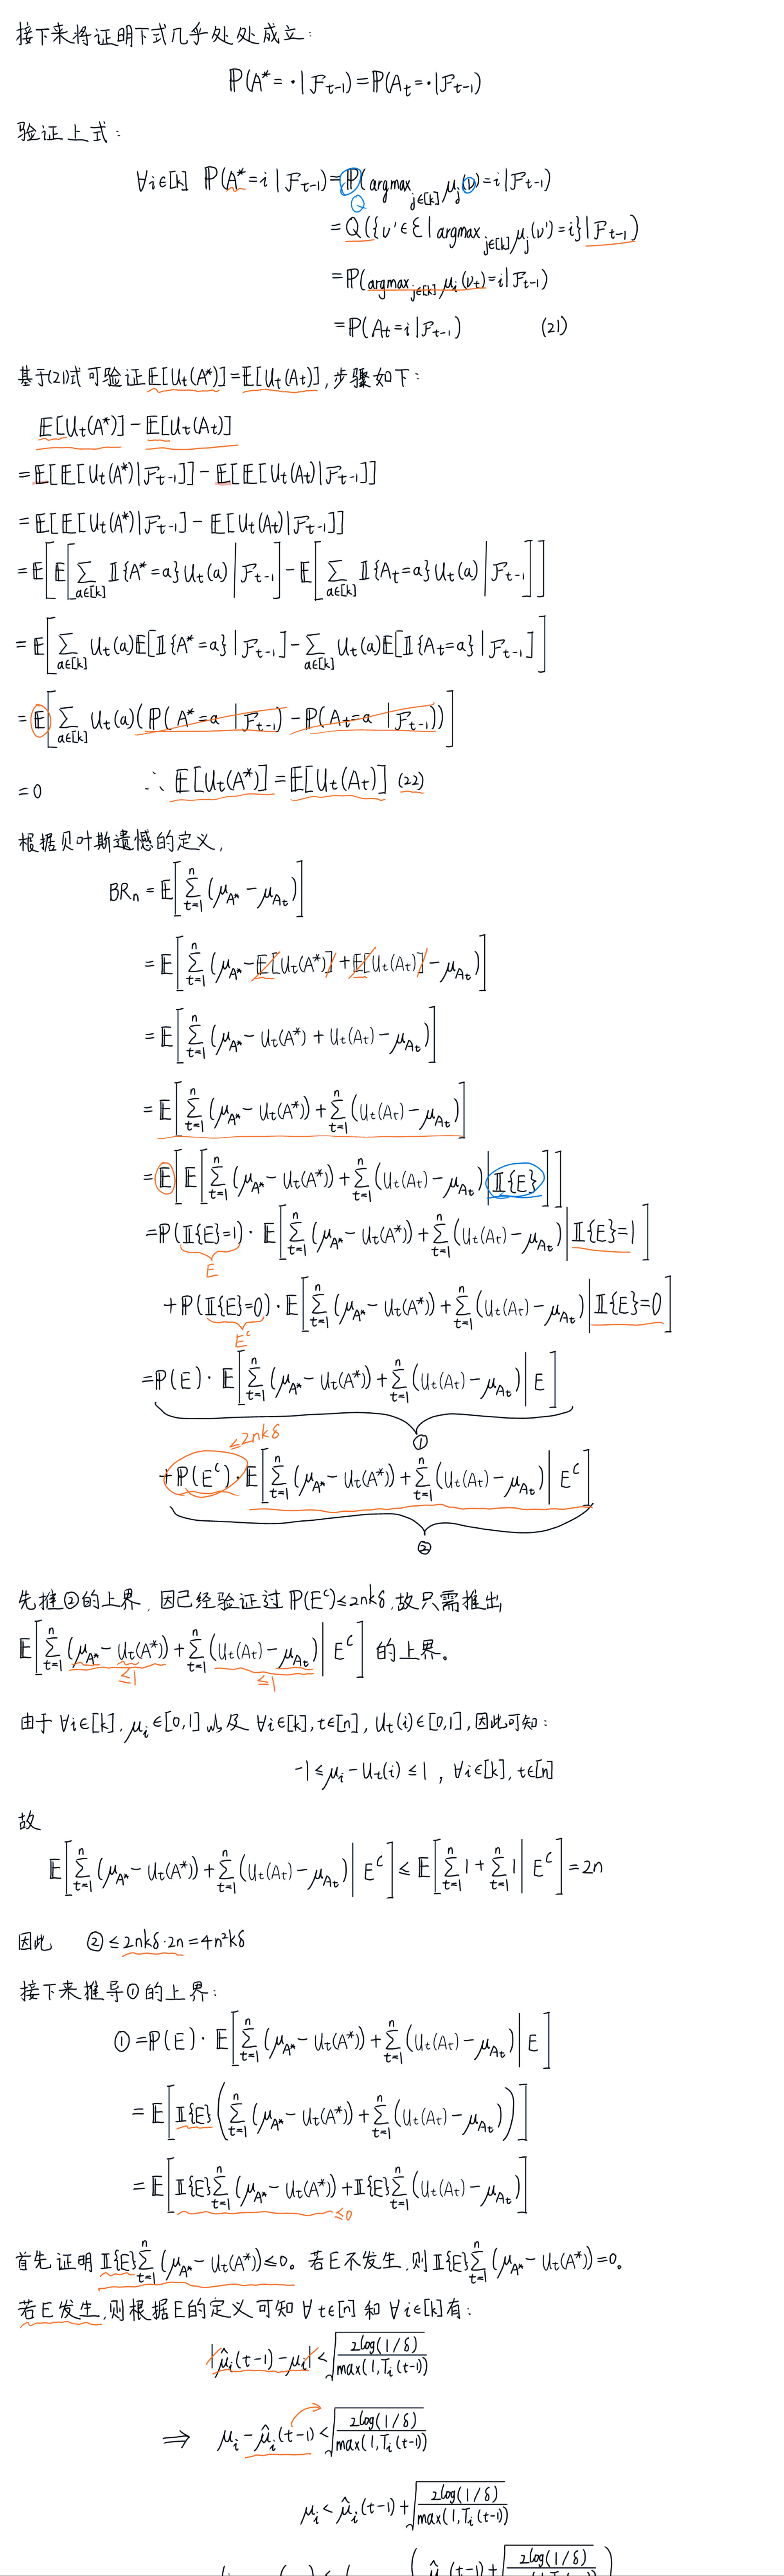 接下来将证明下式几乎处处成立:
ℙ(A*=·|ℱt-1)=ℙ(At=·|ℱt-1)
验证上式:
∀i∈[k] ℙ(A*=i|ℱt-1)=ℙ(argmax j∈[k] μj(ν)=i|ℱt-1)
Q
=Q({ν'∈ℰ|argmax j∈[k] μj(ν')=i}|ℱt-1)
=ℙ(argmax j∈[k] μi(νt)=i|ℱt-1)
=ℙ(At=i|ℱt-1) (21)
基于(21)式可验证𝔼[Ut(A*)]=𝔼[Ut(At)],步骤如下:
𝔼[Ut(A*)]-𝔼[Ut(At)]
=𝔼[𝔼[Ut(A*)|ℱt-1]]-𝔼[𝔼[Ut(At)|ℱt-1]]
=𝔼[𝔼[Ut(A*)|ℱt-1]-𝔼[Ut(At)|ℱt-1]]
=𝔼[𝔼[∑a∈[k] 𝕀{A*=a}Ut(a)|ℱt-1]-𝔼[∑a∈[k] 𝕀{At=a}Ut(a)|ℱt-1]]
=𝔼[∑a∈[k] Ut(a)𝔼[𝕀{A*=a}|ℱt-1]-∑a∈[k] Ut(a)𝔼[𝕀{At=a}|ℱt-1]]
=𝔼[∑a∈[k] Ut(a)(ℙ(A*=a|ℱt-1)-ℙ(At=a|ℱt-1))]
=0 ∴ 𝔼[Ut(A*)]=𝔼[Ut(At)] (22)
根据贝叶斯遗憾的定义,
BRn=𝔼[∑t=1n(μA*-μAt)]
=𝔼[∑t=1n(μA*-𝔼[Ut(A*)]+𝔼[Ut(At)]-μAt)]
=𝔼[∑t=1n(μA*-Ut(A*)+Ut(At)-μAt)]
=𝔼[∑t=1n(μA*-Ut(A*))+∑t=1n(Ut(At)-μAt)]
=𝔼[𝔼[∑t=1n(μA*-Ut(A*))+∑t=1n(Ut(At)-μAt)|𝕀{E}]]
=ℙ(𝕀{E}=1)·𝔼[∑t=1n(μA*-Ut(A*))+∑t=1n(Ut(At)-μAt)|𝕀{E}=1]
E
+ℙ(𝕀{E}=0)·𝔼[∑t=1n(μA*-Ut(A*))+∑t=1n(Ut(At)-μAt)|𝕀{E}=0]
Ec
=ℙ(E)·𝔼[∑t=1n(μA*-Ut(A*))+∑t=1n(Ut(At)-μAt)|E]
①
≤2nkδ
+ℙ(Ec)·𝔼[∑t=1n(μA*-Ut(A*))+∑t=1n(Ut(At)-μAt)|Ec]
②
先推②的上界,因已经验证过ℙ(Ec)≤2nkδ,故只需推出
𝔼[∑t=1n(μA*-Ut(A*))+∑t=1n(Ut(At)-μAt)|Ec]的上界。
≤1 ≤1
由于∀i∈[k],μi∈[0,1]以及∀i∈[k],t∈[n],Ut(i)∈[0,1],因此可知:
-1≤μi-Ut(i)≤1,∀i∈[k],t∈[n]
故
𝔼[∑t=1n(μA*-Ut(A*))+∑t=1n(Ut(At)-μAt)|Ec]≤𝔼[∑t=1n 1+∑t=1n 1|Ec]=2n
因此 ②≤2nkδ·2n=4n²kδ
接下来推导①的上界:
①=ℙ(E)·𝔼[∑t=1n(μA*-Ut(A*))+∑t=1n(Ut(At)-μAt)|E]
=𝔼[𝕀{E}(∑t=1n(μA*-Ut(A*))+∑t=1n(Ut(At)-μAt))]
=𝔼[𝕀{E}∑t=1n(μA*-Ut(A*))+𝕀{E}∑t=1n(Ut(At)-μAt)]
≤0
首先证明𝕀{E}∑t=1n(μA*-Ut(A*))≤0。若E不发生,则𝕀{E}∑t=1n(μA*-Ut(A*))=0。
若E发生,则根据E的定义可知∀t∈[n]和∀i∈[k]有:
|μ̂i(t-1)-μi|<√(2log(1/δ)/max(1,Ti(t-1)))
⟹ μi-μ̂i(t-1)<√(2log(1/δ)/max(1,Ti(t-1)))
μi<μ̂i(t-1)+√(2log(1/δ)/max(1,Ti(t-1)))